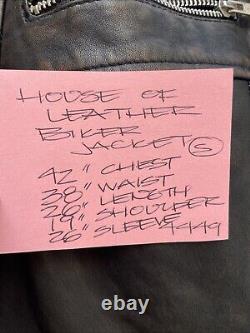 HOUSE OF
LEATHER
BIKER
JACKET Ⓢ
42" CHEST
38" WAIST
26" LENGTH
19" SHOULDER
26" SLEEVE 4449